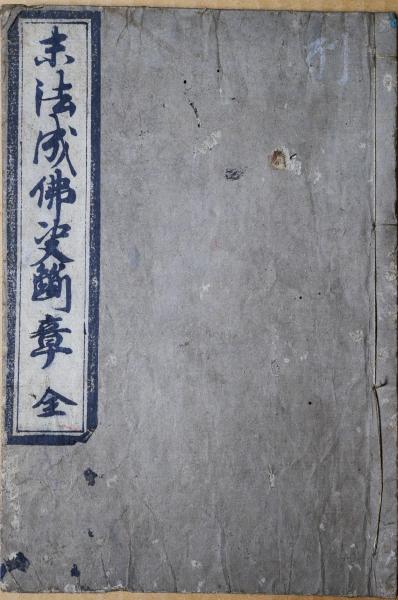 末法成佛决斷章 全